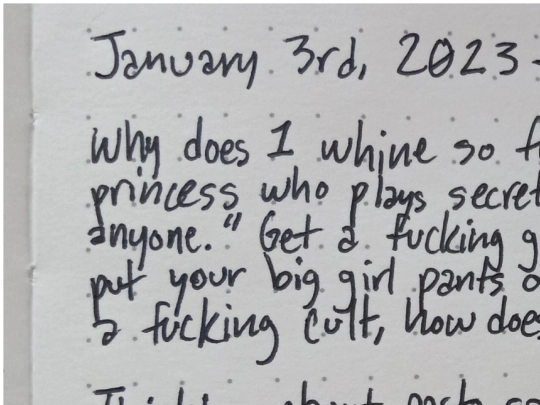 January 3rd, 2023 -
Why does 1 whine so f
princess who plays secret
anyone." Get a fucking g
put your big girl pants o
a fucking cult, how does
about